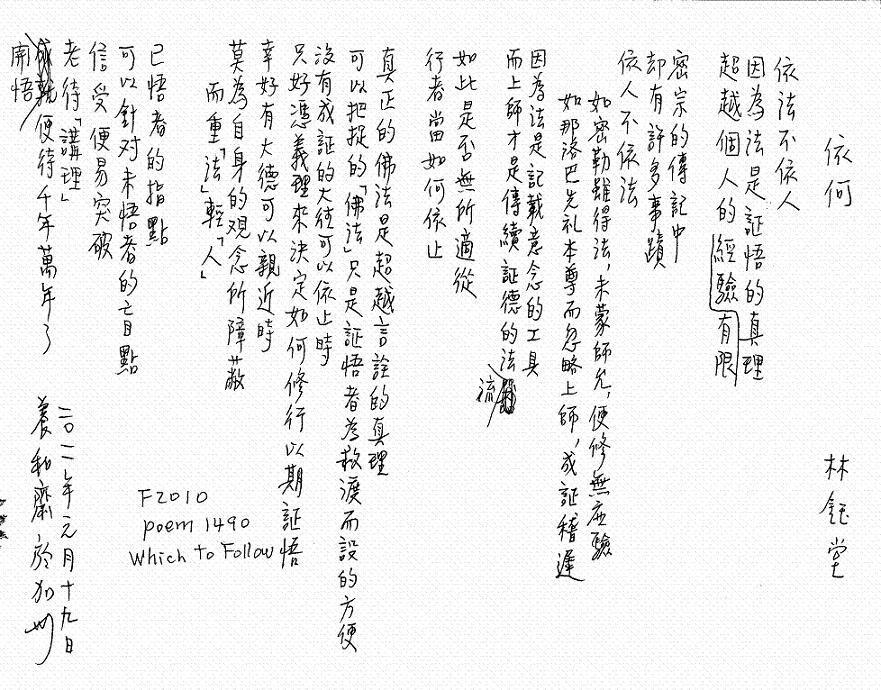 依何 林鈺堂
依法不依人
因為法是証悟的真理
超越個人的經驗有限
密宗的傳記中
却有許多事蹟
依人不依法
如密勒雖得法，未蒙師允，便修無応驗
如那洛巴先礼本尊而忽略上師，成証稽遲
因為法是記載意念的工具
而上師才是傳續証德的法流
如此是否無所適從
行者當如何依止
真正的佛法是超越言詮的真理
可以把捉的「佛法」只是証悟者為救渡而設的方便
沒有成証的大德可以依止時
只好憑義理來決定如何修行以期証悟
幸好有大德可以親近時
莫為自身的观念所障蔽
而重「法」輕「人」
已悟者的指點
可以針对未悟者的盲點
信受便易突破
老待「講理」
開悟便待千年萬年了
二〇一一年元月十九日
養和齋於加州
F2010
poem 1490
Which to Follow